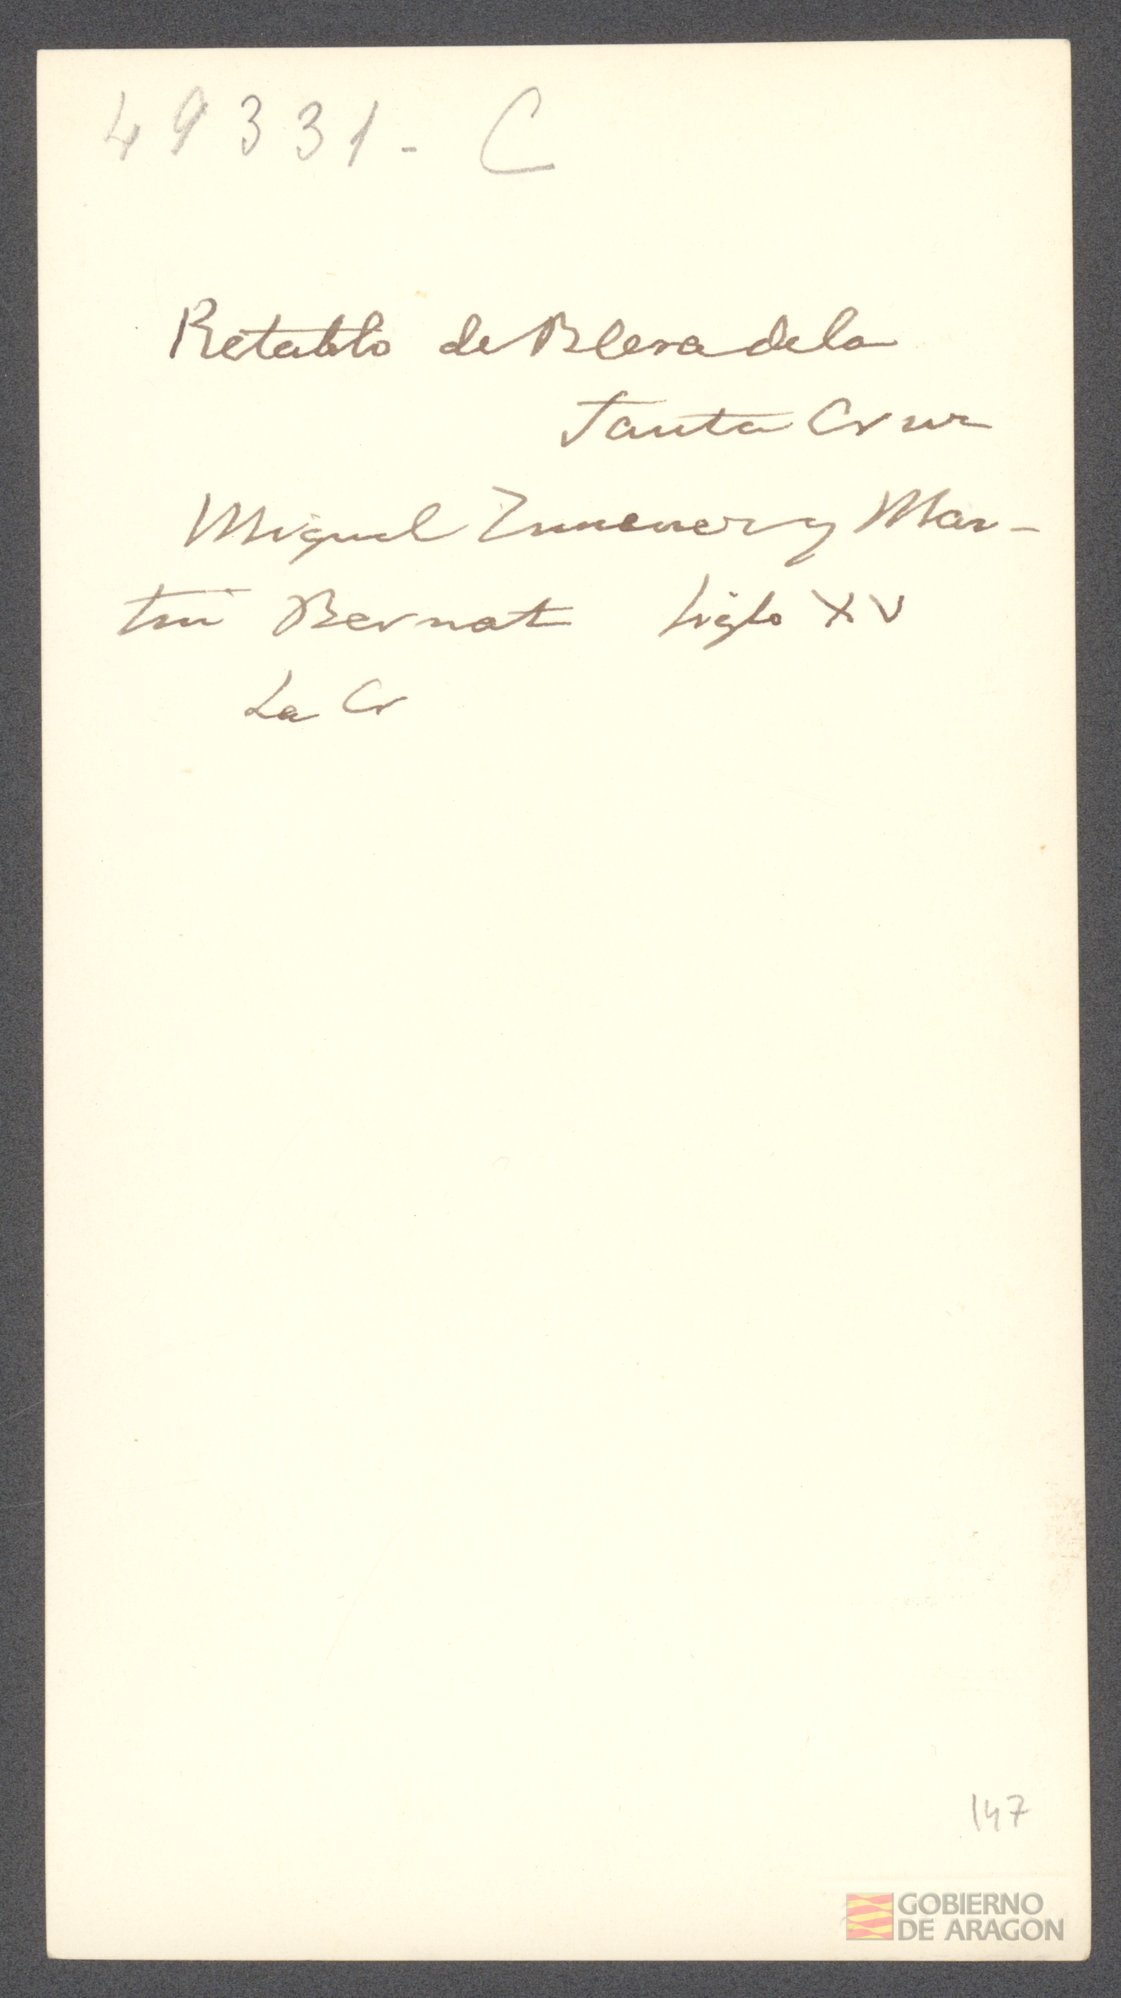 49331- C
Retablo de Blesa de la
Santa Cruz
Miguel Ximenez y Mar-
tin Bernat siglo XV
La Cr
147
GOBIERNO
DE ARAGON